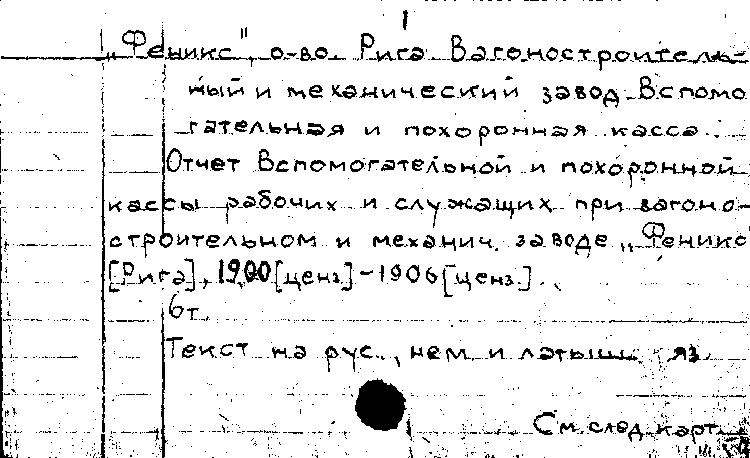 1
„Феникс", о-во. Рига. Вагоностроитель-
ный и механический завод. Вспомо
гательная и похоронная касса.
Отчет Вспомогательной и похоронной
кассы рабочих и служащих при вагоно-
строительном и механич. заводе „Феникс
[Рига], 1900 [ценз] - 1906 [ценз].
6 т.
Текст на рус., нем и латыш. яз.
См. след. карт.